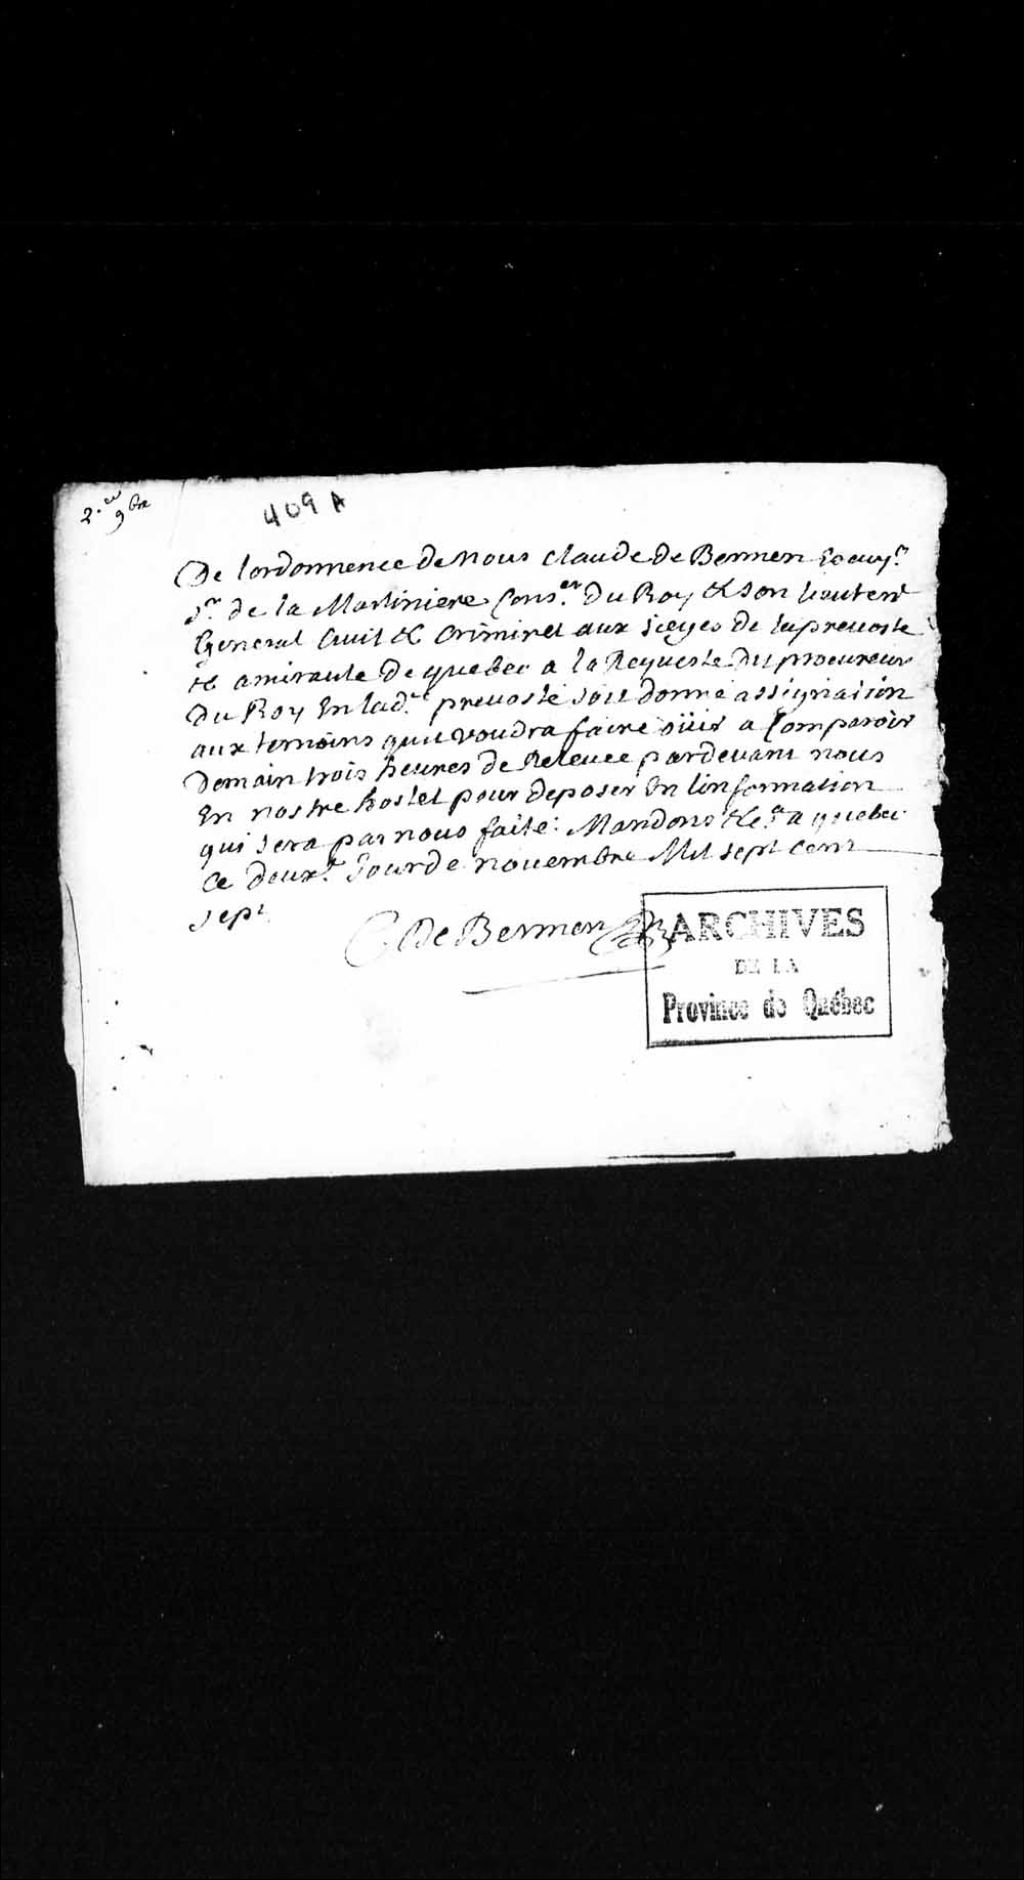 2.e 9bre
409 A
De lordonnence de nous Claude de Bermen Escuyr
Sr de la Martiniere Conser du Roy & son lieutent
General Civil & Criminel aux sieges de la prevosté
& amirauté de quebec a la Requeste du procureur
du Roy En lad.te prevosté soit donné assignation
aux temoins quil voudra faire oüir a Comparoir
demain trois heures de Relevee pardevant nous
En nostre hostel pour deposer En linformation
qui sera par nous faite: Mandons &c.a a quebec
Ce deuxe Jour de novembre Mil sept cent
sept
C. De Bermen
ARCHIVES
DE LA
Province de Québec